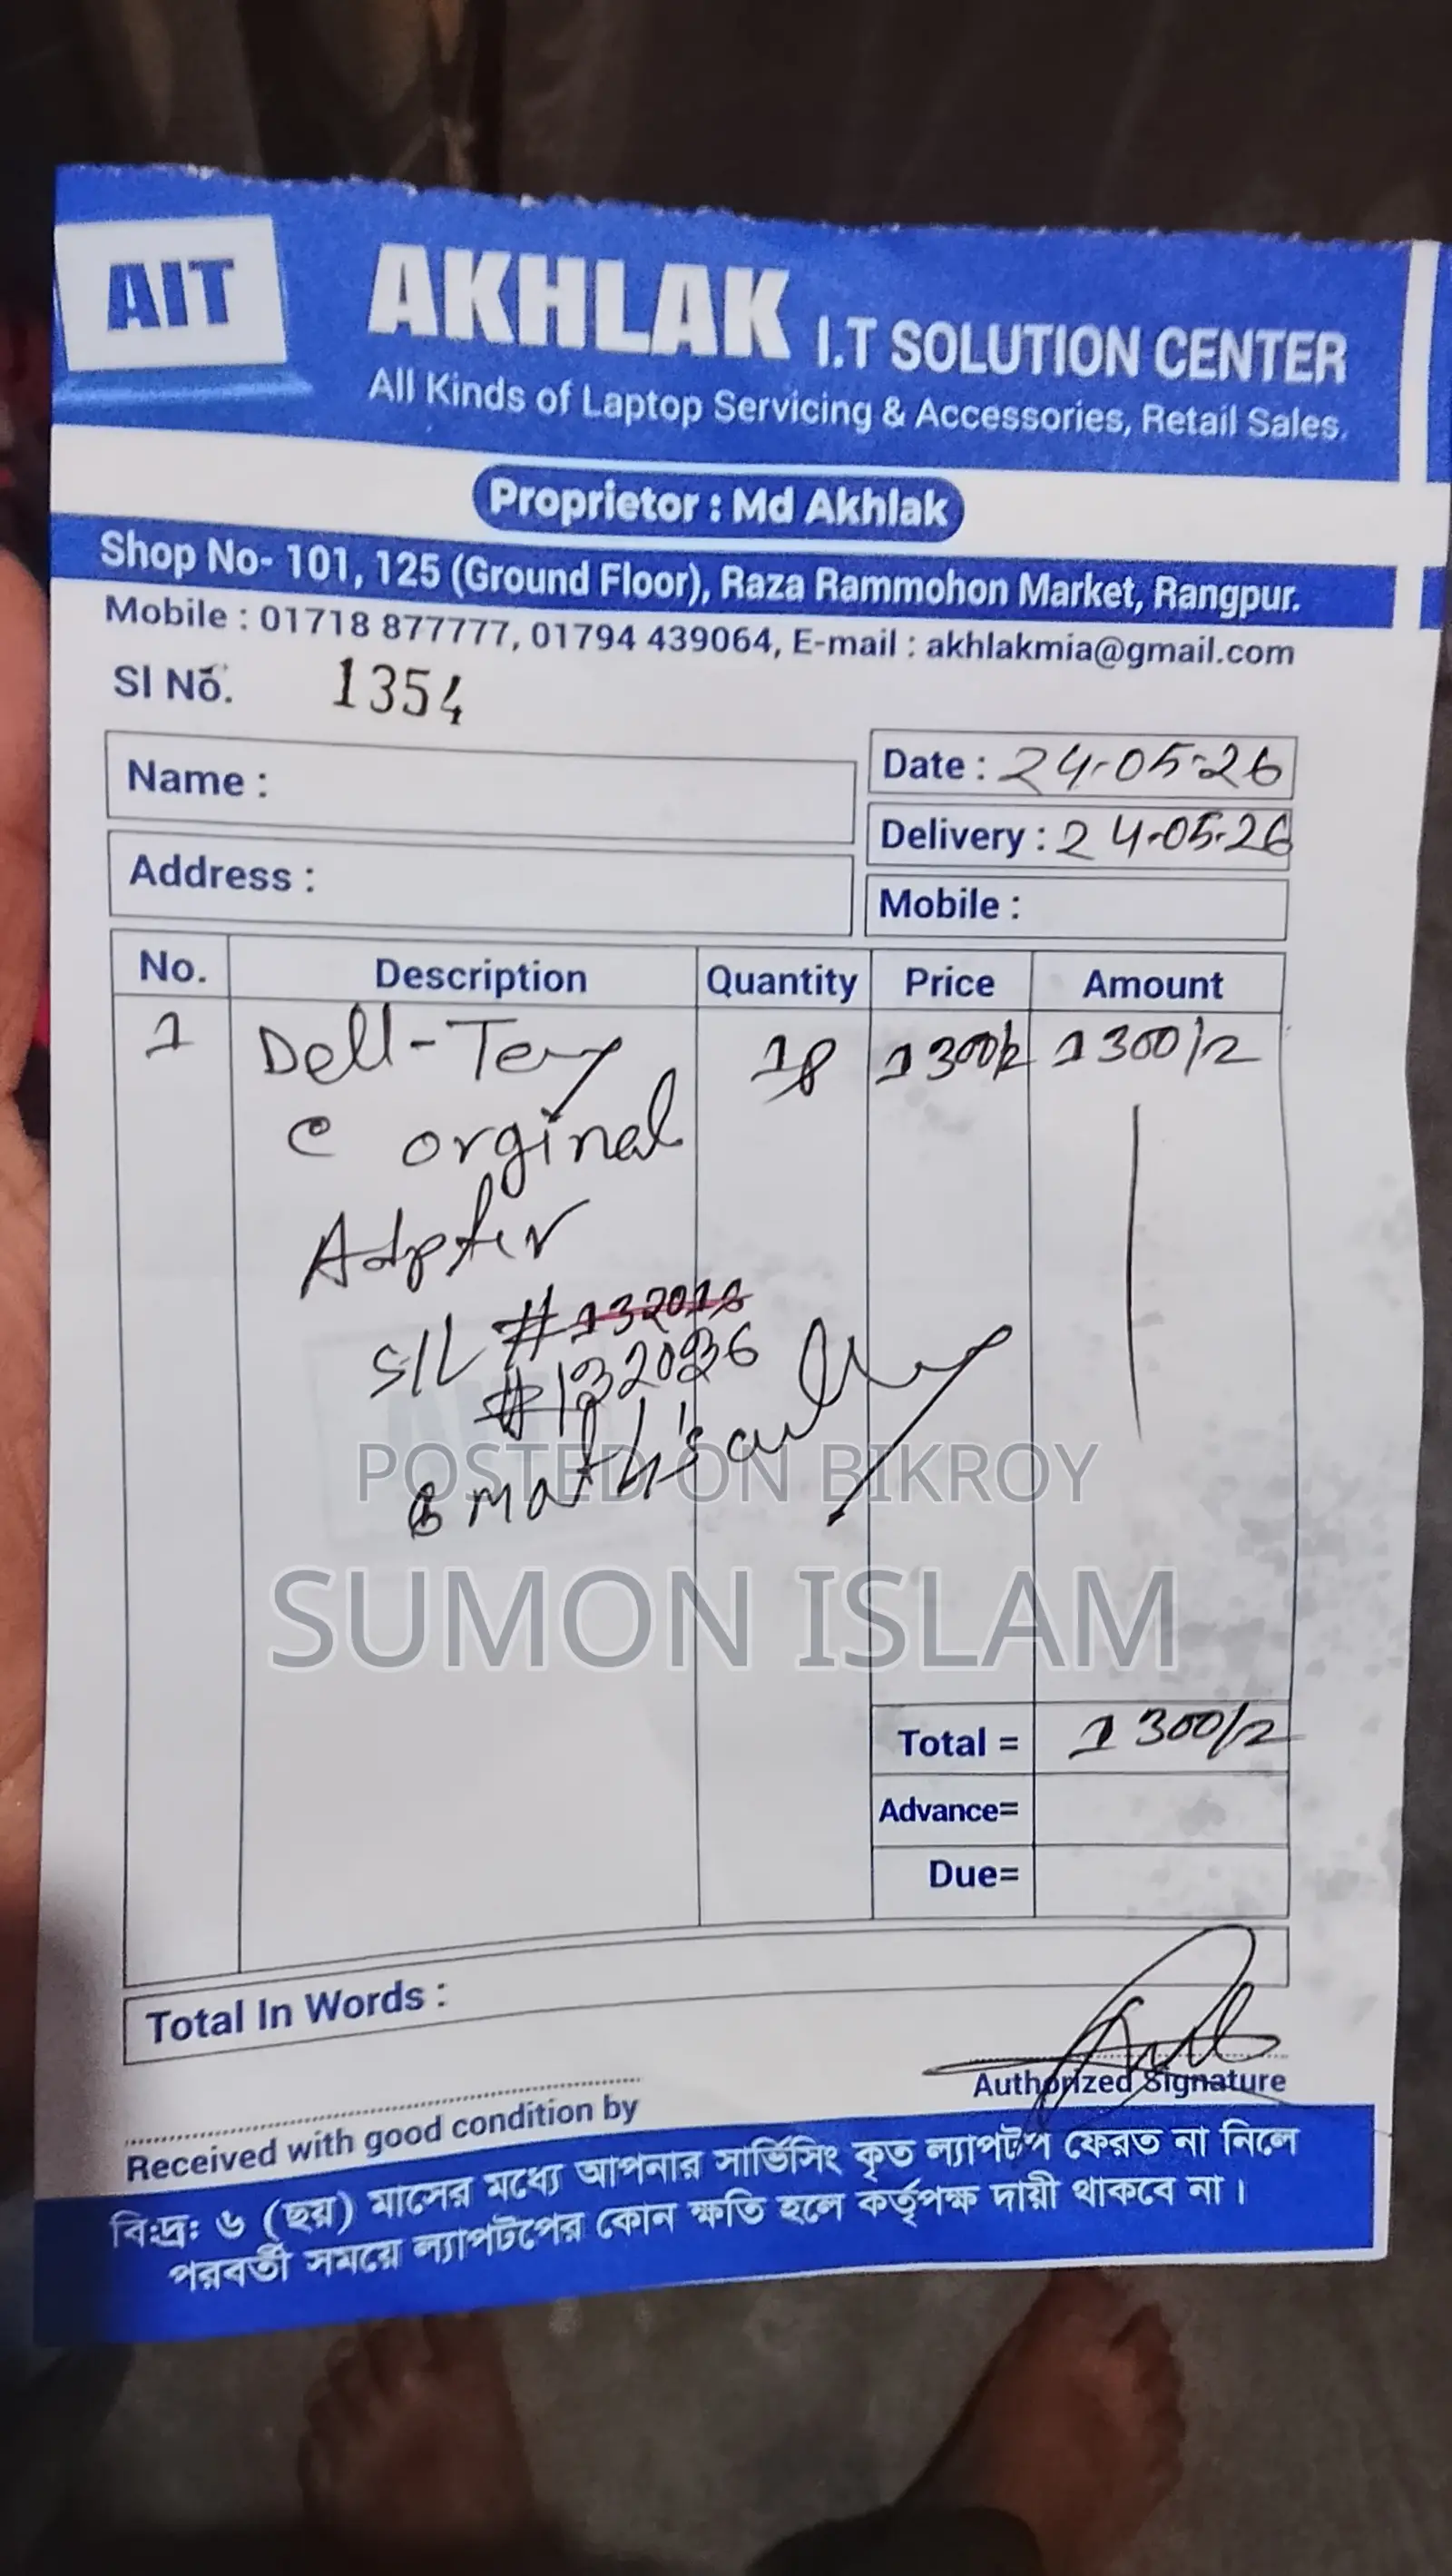 AIT
AKHLAK I.T SOLUTION CENTER
All Kinds of Laptop Servicing & Accessories, Retail Sales.
Proprietor : Md Akhlak
Shop No- 101, 125 (Ground Floor), Raza Rammohon Market, Rangpur.
Mobile : 01718 877777, 01794 439064, E-mail : akhlakmia@gmail.com
Sl No. 1354
Name :
Date : 24-05-26
Delivery : 24-05-26
Address :
Mobile :
No. Description Quantity Price Amount
1 Dell-Tery 1300/2 1300/2
c orginal
Adpter
S/L #132018
#132036
6 math's
POSTED ON BIKROY
SUMON ISLAM
Total = 1300/2
Advance=
Due=
Total In Words :
Authorized Signature
Received with good condition by
বি:দ্র: ৬ (ছয়) মাসের মধ্যে আপনার সার্ভিসিং কৃত ল্যাপটপ ফেরত না নিলে
পরবর্তী সময়ে ল্যাপটপের কোন ক্ষতি হলে কর্তৃপক্ষ দায়ী থাকবে না।